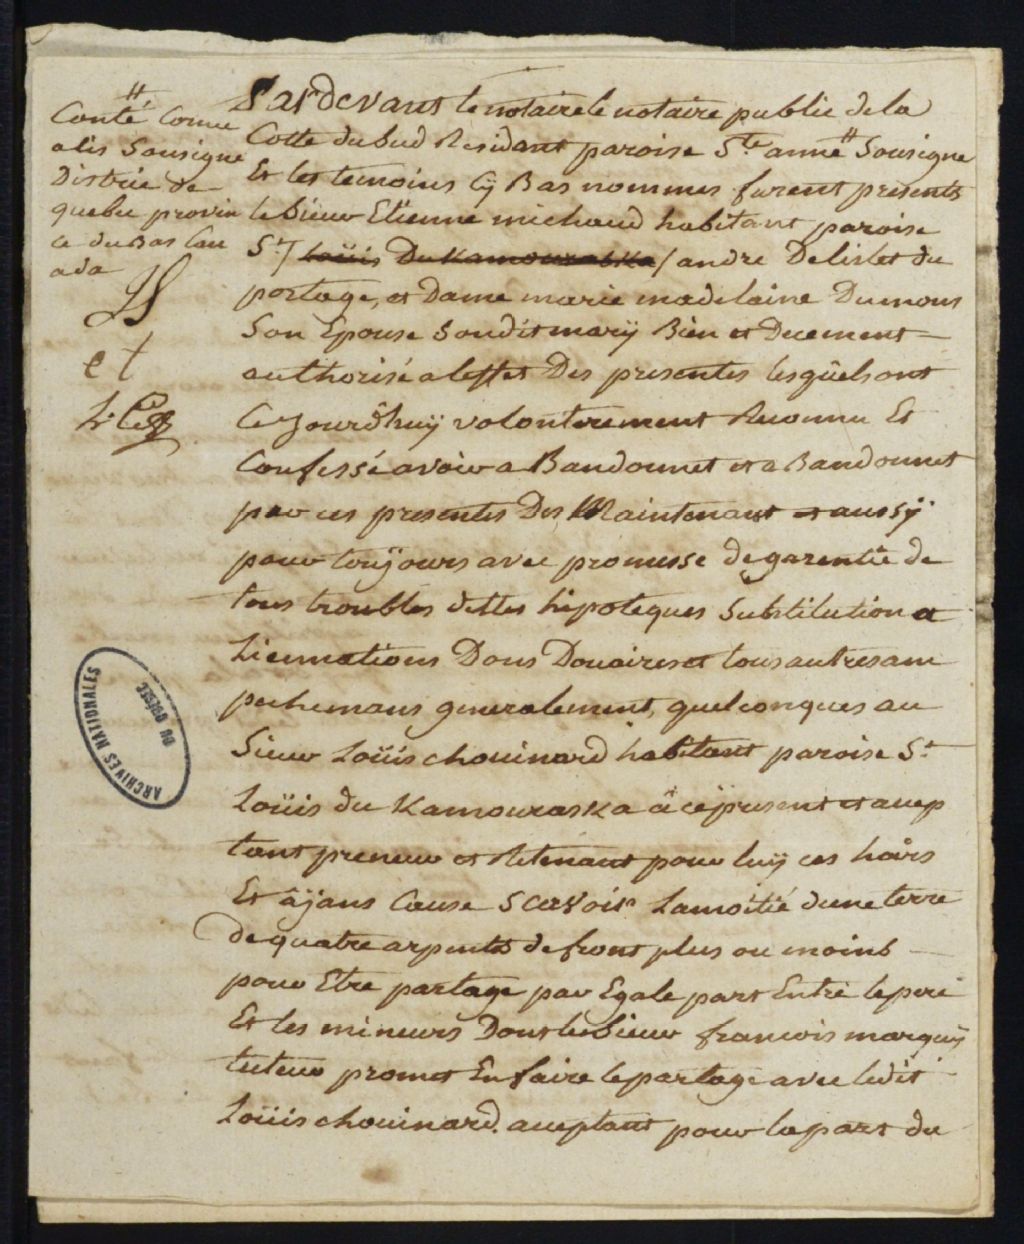 #
Conté Cornw
alis Sousigne
Districe de
quebec provin
ce du Bas Can
ada
et
Pardevant le notaire le notaire public de la
Cotte du Sud Residant paroise Ste anne # Sousigne
Et les temoins Cÿ Bas nommes furent presents
le Sieur Etienne michaud habitant paroise
St / Loüis Du Kamouraska / andre Delislet du
portage, et Dame marie madelaine Dumons
Son Epouse Soudit marÿ Bien et Ducement
authorisé a leffet Des presentes lesqûels ont
Ce Jourdhuÿ volonterement Reconnu Et
Confessé avoir a Bandonnet et a Bandonnet
par ces presentes Des Maintenant et aussÿ
pour toujours avec promesse de garentie de
tous troubles dettes hipoteques Substitution a
Liennations Dons Douaires et tous autres am
pechemans generalement, quelconques au
Sieur Loüis chouinard habitant paroise St
Loüis du Kamouraska â ce present et accep
tant preneur et Retenant pour luÿ ces hoirs
Et aÿans Cause Scavoir Lamoitié dune terre
de quatre arpents de front plus ou moins
pour Etre partage par Egale part Entre le pere
Et les mineurs Dont le Sieur francois marquÿ
tuteur promet En faire le partage avec ledit
Loüis chouinard. acceptant pour la part du
ARCHIVES NATIONALES
DU QUEBEC